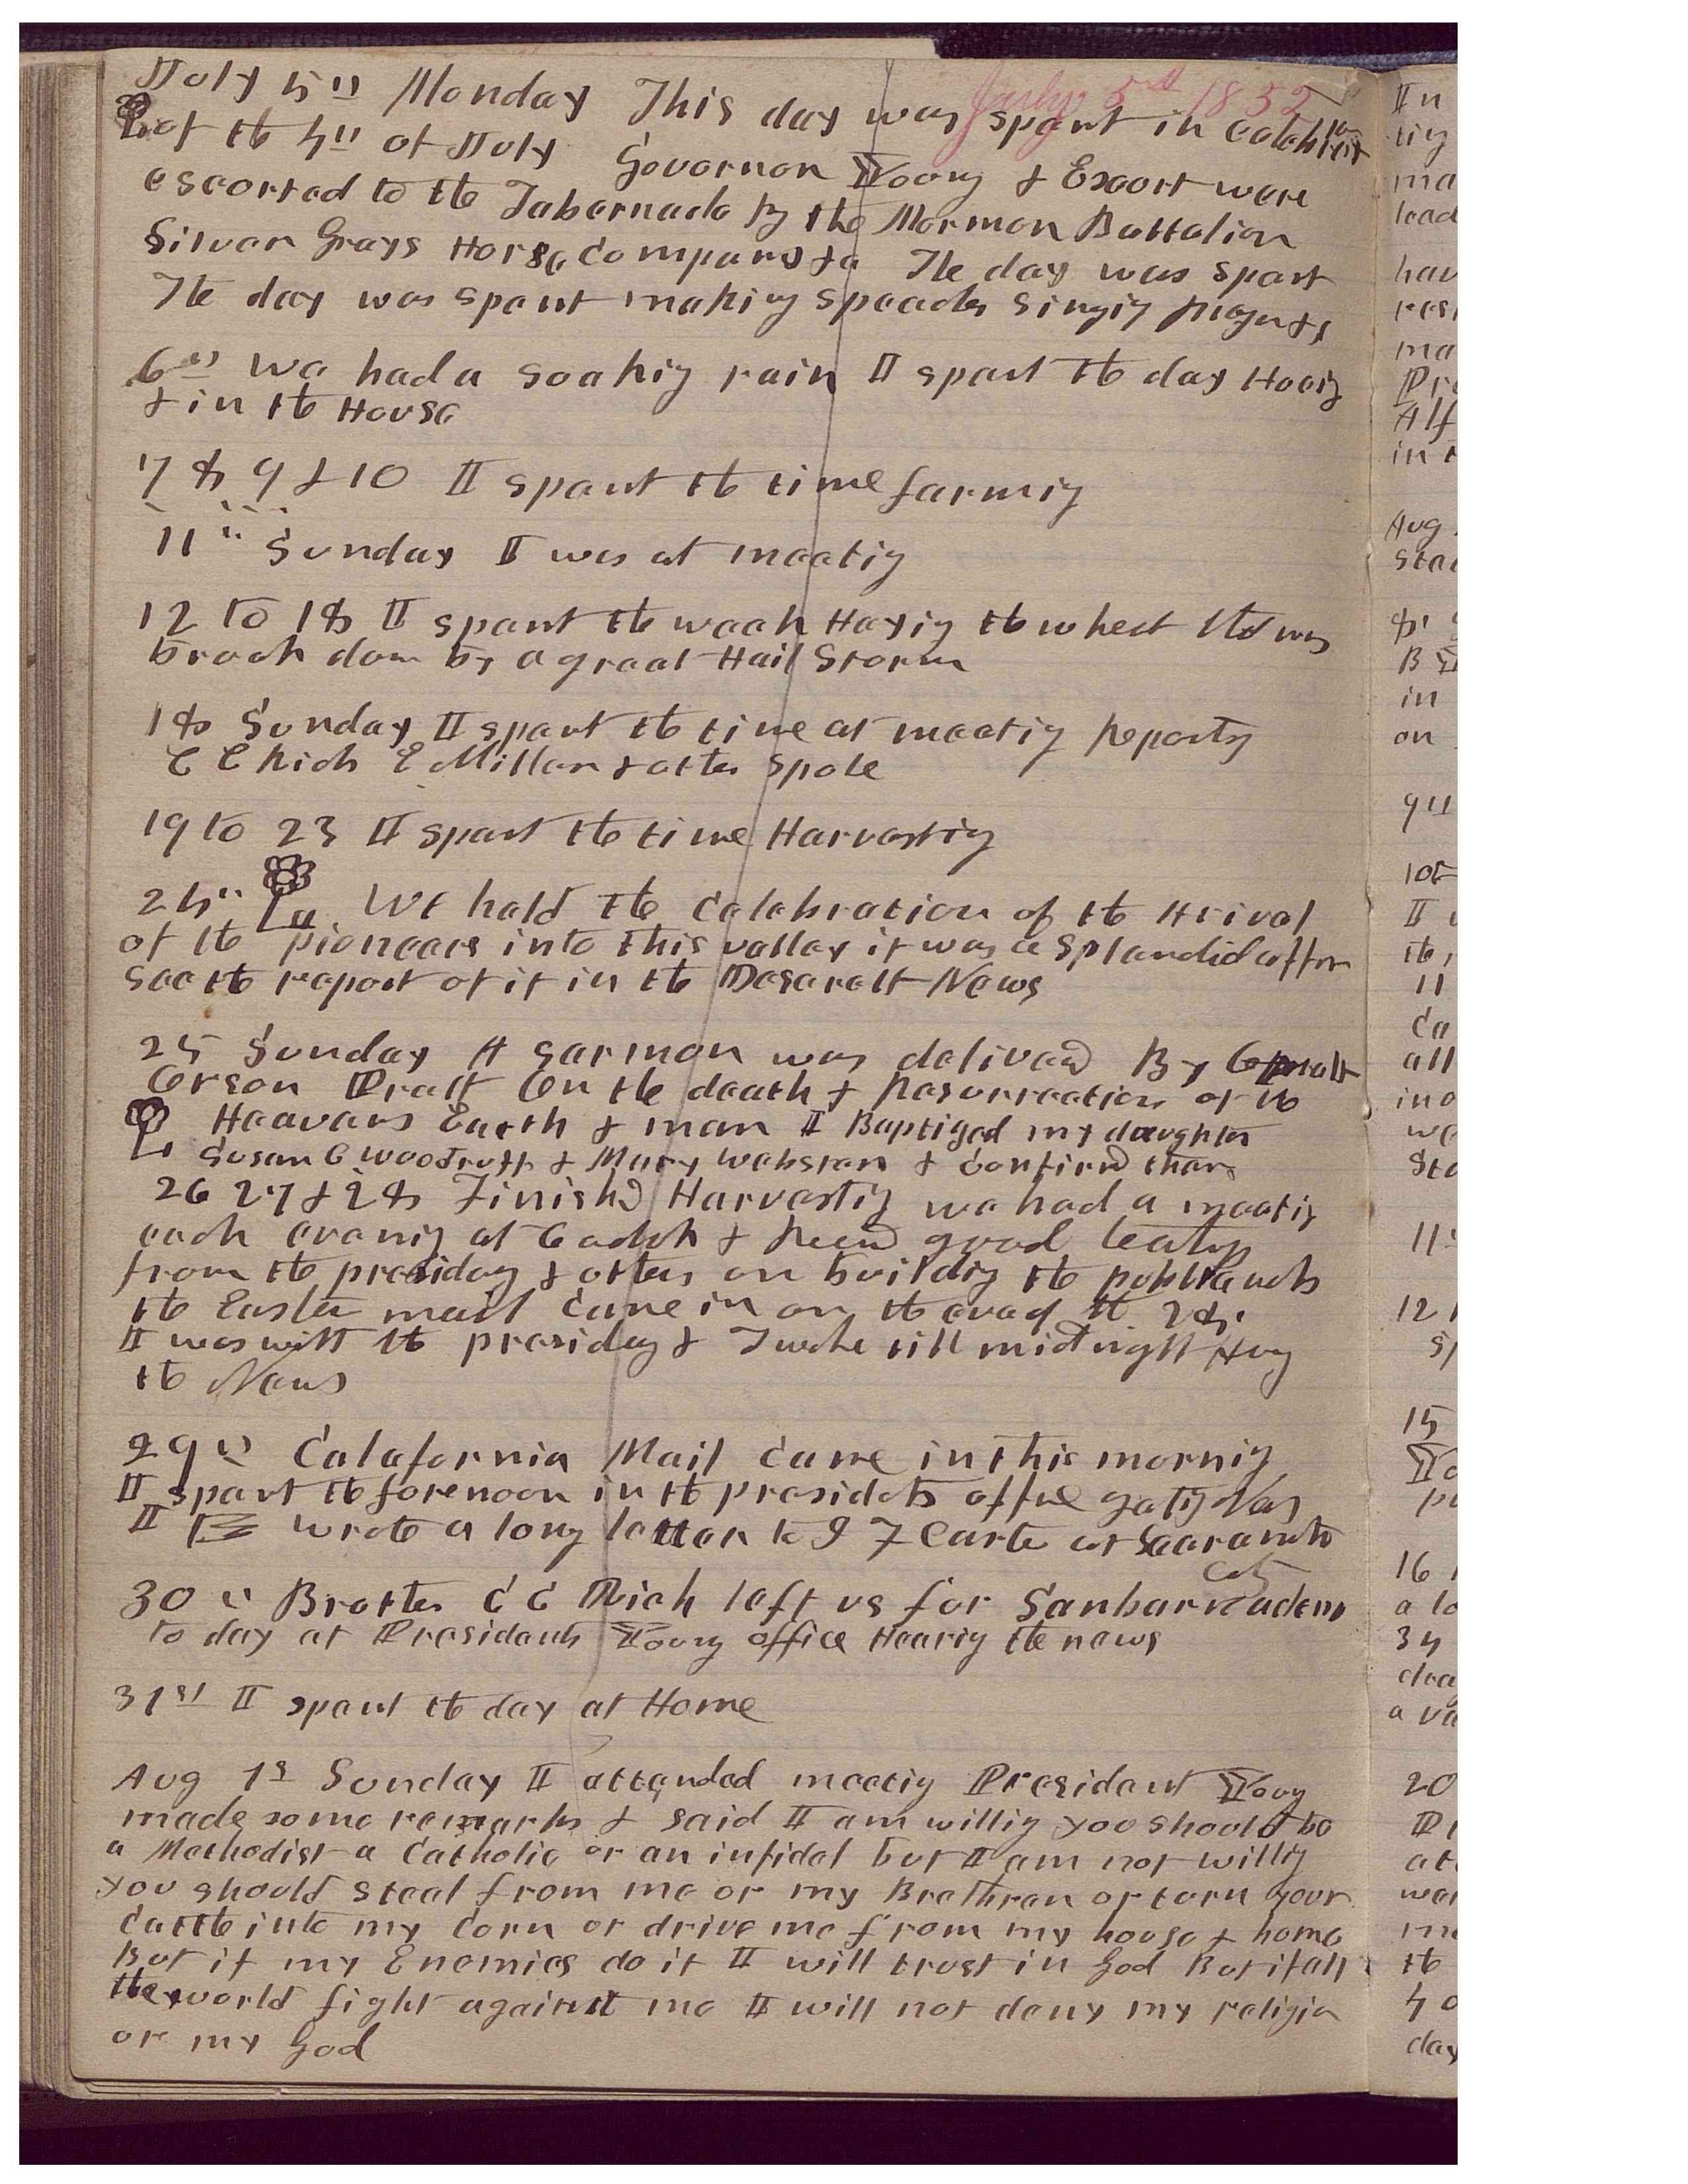 July 5th Monday This day was spent in celebrat
of the 4th of July Governor Young & Escort were
escorted to the Tabernacle by the Mormon Battalion
Silver Grays Horse Company &c The day was spent
The day was spent making speeches singing prayer &c
July 5th 1852
6th We had a soaking rain I spent the day Hoeing
& in the House
7 8 9 & 10 I spent the time farming
11th Sunday I was at meeting
12 to 18 I spent the week Haying the wheat that was
broak down by a great Hail Storm
18 Sunday I spent the time at meeting Reporting
C C Rich E Miller & other spoke
19 to 23 I spent the time Harvesting
24th We held the Celebration of the Arival
of the pioneers into this valley it was a splendid affair
see the report of it in the Deserett News
25 Sunday A Sermon was delivered By
Orson Pratt On the death & Resurrection of the
Heavens Earth & man I Baptized my daughter
Susan C Woodruff & Mary Webster & Confirmd them
26 27 & 28 Finishd Harvesting we had a meeting
each evening at 6 oclok & Receivd good teachings
from the presidency & others on building the public works
the Eastern mail came in on the eve of the 28.
I was with the presidency & Twelve till midnight Hearing
the News
29th Calafornia Mail came in this morning
I spent the forenoon in the presidents office getting News
I wrote a long letter to I F Carter at Sacramento
City
30th Brother C C Rich left us for Sanbarnadeno
to day at Presidents Young office Hearing the news
31st I spent the day at Home
Aug 1st Sunday I attended meeting President Young
made some remarks & said I am willing you should be
a Methodist a Catholic or an infidel but I am not willing
you should steal from me or my Brethren or turn your
Cattle into my Corn or drive me from my house & home
But if my Enemies do it I will trust in God But if all
the world fight against me I will not deny my religion
or my God